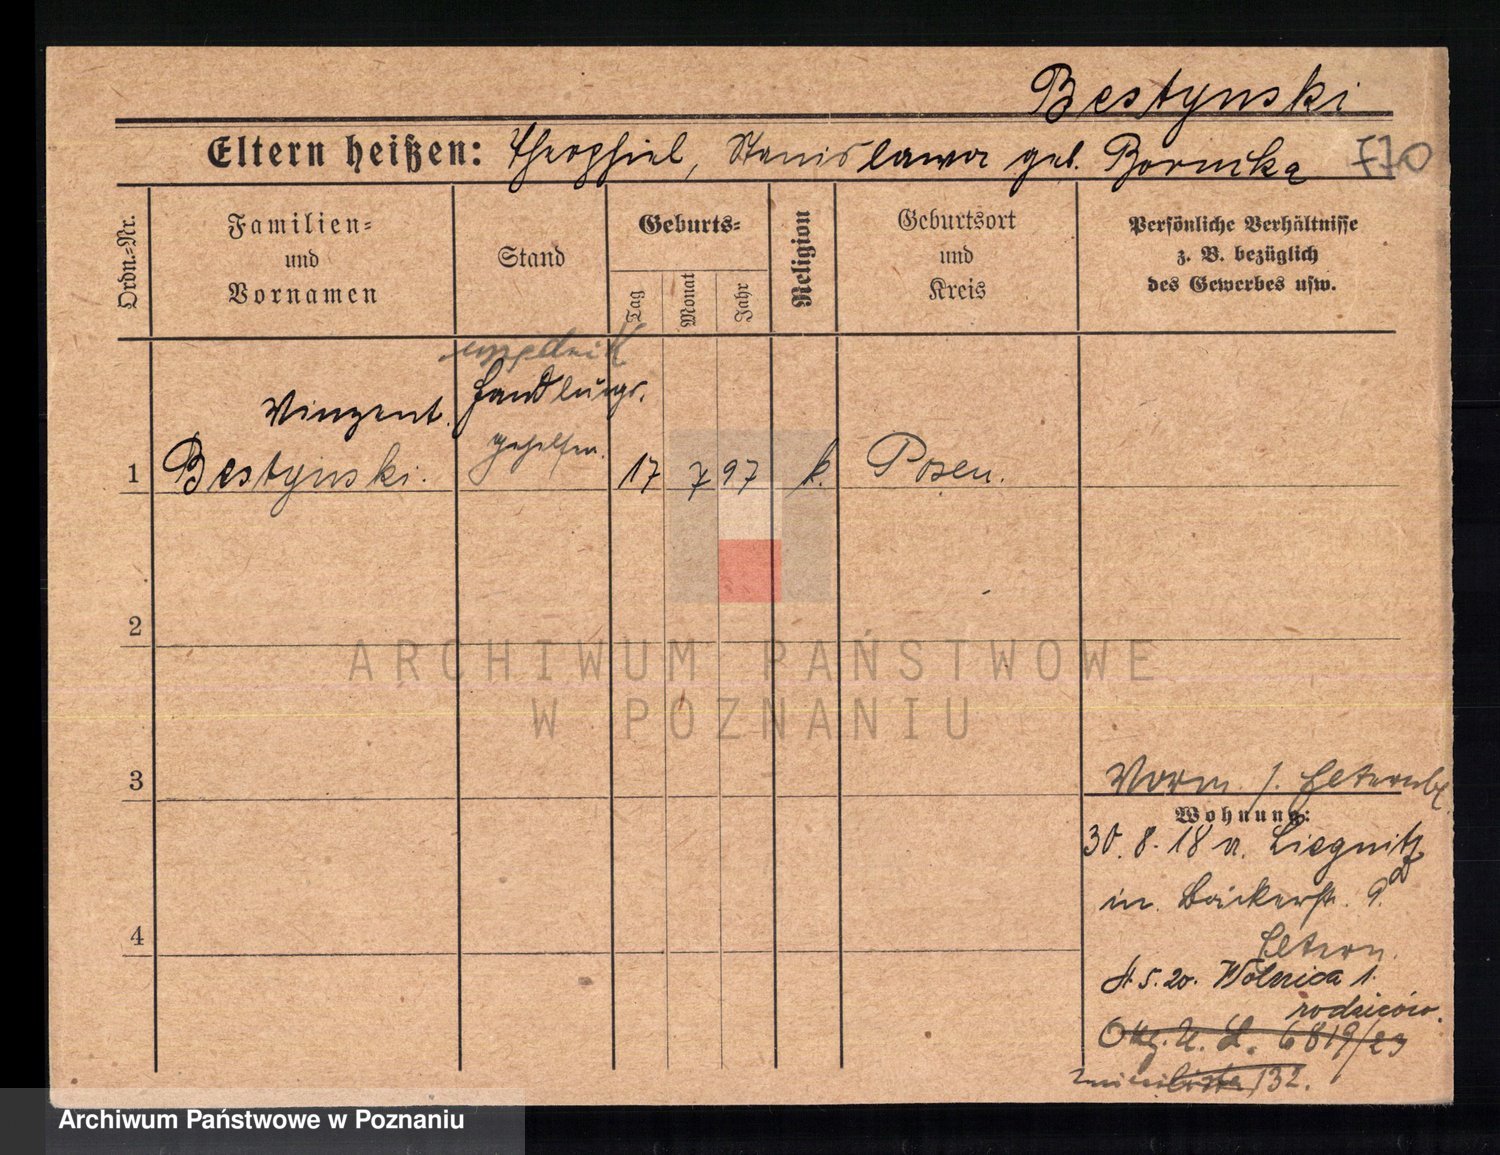 Bestynski
Eltern heißen: Theophiel, Stanislawa geb. Bornicka 770
Ordn.=Nr.
Familien=
und
Vornamen
Stand
Geburts=
Tag
Monat
Jahr
Religion
Geburtsort
und
Kreis
Persönliche Verhältnisse
z. B. bezüglich
des Gewerbes usw.
urzędnik
Vinzent Handlungs.
gehilfen.
1 Bestynski. 17 7 97 k. Posen.
2
3
4
Vorm. s. Elternbl.
Wohnung:
30. 8. 18 v. Liegnitz
in Bäckerstr. 9.
Eltern.
5. 20. Wolnica 1.
rodziców.
6819/23
132.
ARCHIWUM PAŃSTWOWE
W POZNANIU
Archiwum Państwowe w Poznaniu